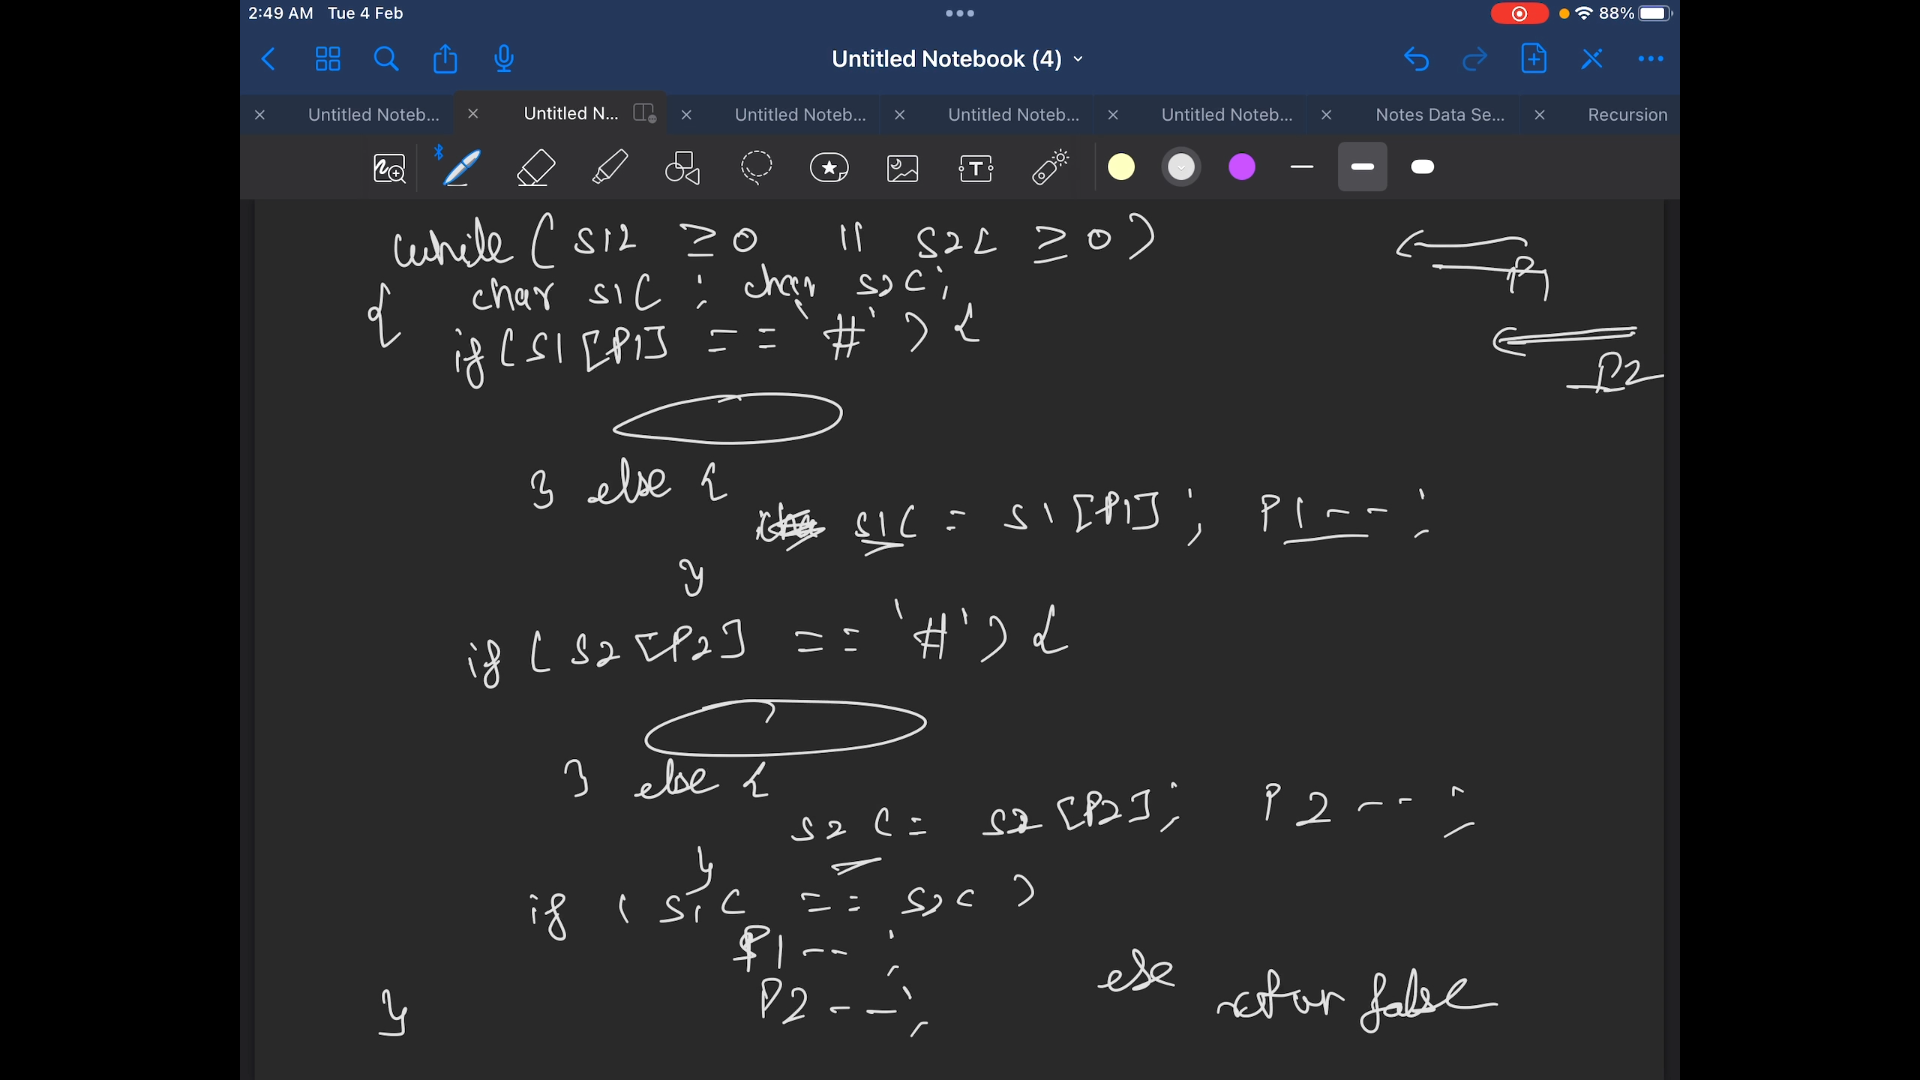 2:49 AM Tue 4 Feb
88%
Untitled Notebook (4)
Untitled Noteb...
Untitled N...
Untitled Noteb...
Untitled Noteb...
Untitled Noteb...
Notes Data Se...
Recursion
T
while ( S12 ≥ 0 || S2C ≥ 0 )
{ char S1C ; char S2C ;
if ( S1 [P1] == '#' ) {
P1
P2
} else {
S1C = S1 [P1] ; P1 -- ;
}
if ( S2 [P2] == '#' ) {
} else {
S2C = S2 [P2] ; P2 -- ;
}
if ( S1C == S2C )
P1 -- ;
else
P2 -- ;
return false
}